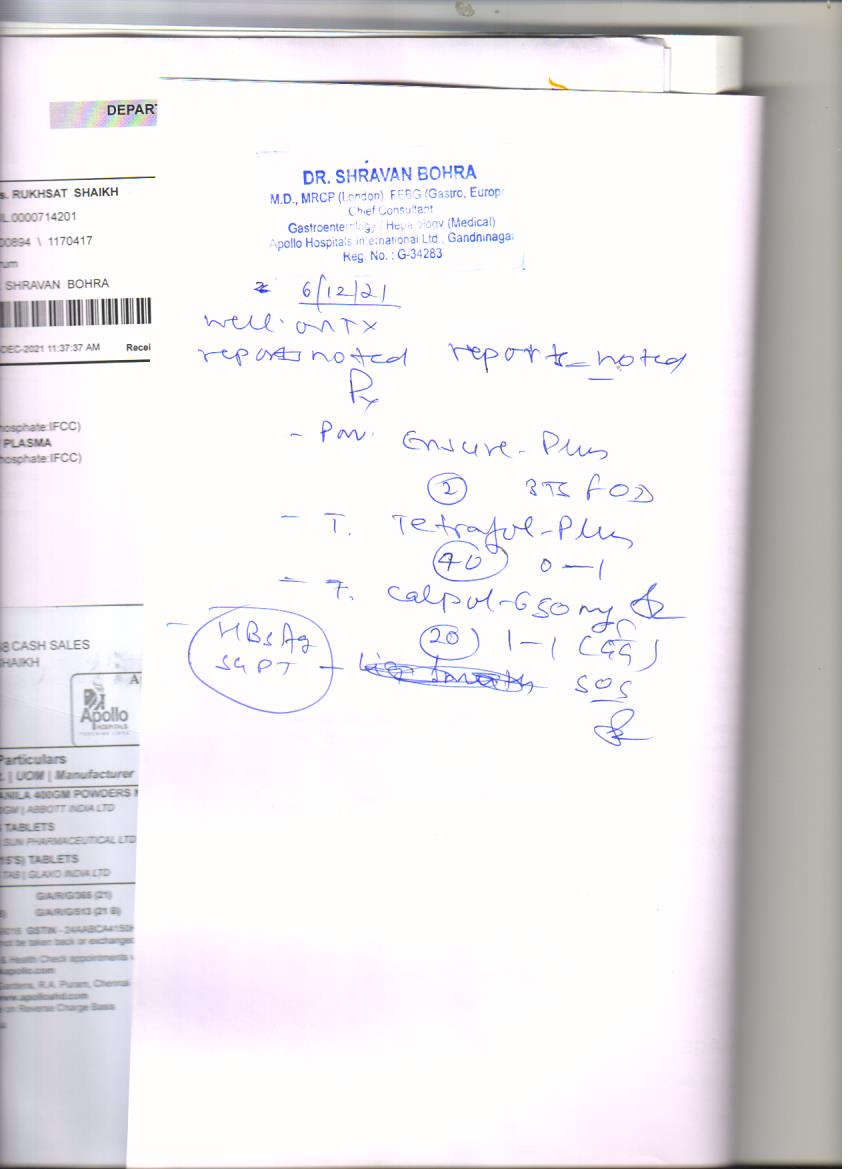 DEPAR
s. RUKHSAT SHAIKH
IL.0000714201
00894 \ 1170417
rum
SHRAVAN BOHRA
DEC-2021 11:37:37 AM Recei
hosphate:IFCC)
PLASMA
hosphate:IFCC)
DR. SHRAVAN BOHRA
M.D., MRCP (London), FEBG (Gastro, Europ
Chief Consultant
Gastroenterology / Hepatology (Medical)
Apollo Hospitals International Ltd., Gandhinagar
Reg. No. : G-34283
6/12/21
well on TX
reports noted reports noted
Rx
- Pow. Ensure-Plus
2 3TS FOD
- T. Tetrafol-Plus
40 0-1
- T. Calpol-650 mg
20 1-1
SOS
- HBsAg
SGPT -
8 CASH SALES
HAIKH
Apollo
HOSPITALS
Particulars
. | UOM | Manufacturer
ANILA 400GM POWDERS
0GM | ABBOTT INDIA LTD
TABLETS
SUN PHARMACEUTICAL LTD
15'S) TABLETS
TAB | GLAXO INDIA LTD
G/A/R/G/365 (21)
G/A/R/G/513 (21 B)
GSTIN - 24AABCA4150H
not be taken back or exchanged
& Health Check appointments
apollo.com
Gardens, R.A. Puram, Chennai
www.apolloahd.com
on Reverse Charge Basis